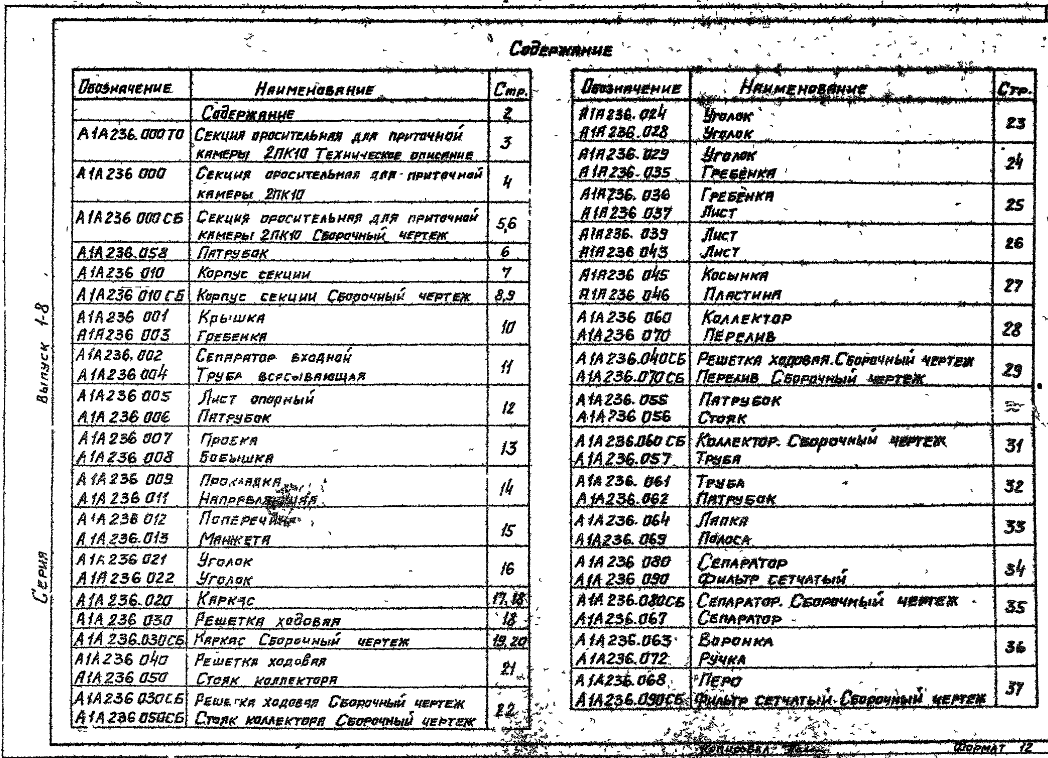 Содержание
Обозначение Наименование Стр.
Содержание 2
А1А236.000ТО Секция оросительная для приточной
камеры 2ПК10 Техническое описание 3
А1А236 000 Секция оросительная для приточной
камеры 2ПК10 4
А1А236 000СБ Секция оросительная для приточной
камеры 2ПК10 Сборочный чертеж 5,6
А1А236.058 Патрубок 6
А1А236 010 Корпус секции 7
А1А236 010СБ Корпус секции Сборочный чертеж 8,9
А1А236 001 Крышка 10
А1А236 003 Гребенка
А1А236.002 Сепаратор входной 11
А1А236 004 Труба всасывающая
А1А236 005 Лист опорный 12
А1А236 006 Патрубок
А1А236 007 Пробка 13
А1А236 008 Бобышка
А1А236 009 Прокладка 14
А1А236 011 Направляющая
А1А236 012 Поперечина 15
А1А236.013 Манжета
А1А236 021 Уголок 16
А1А236 022 Уголок
А1А236.020 Каркас 17,18
А1А236 030 Решетка ходовая 18
А1А236.030СБ Каркас Сборочный чертеж 19,20
А1А236 040 Решетка ходовая 21
А1А236 050 Стояк коллектора
А1А236 030СБ Решетка ходовая Сборочный чертеж 22
А1А236 050СБ Стояк коллектора Сборочный чертеж
Обозначение Наименование Стр.
А1А236.024 Уголок 23
А1А236.028 Уголок
А1А236.029 Уголок 24
А1А236.035 Гребёнка
А1А236.036 Гребёнка 25
А1А236 037 Лист
А1А236.039 Лист 26
А1А236 043 Лист
А1А236 045 Косынка 27
А1А236 046 Пластина
А1А236 060 Коллектор 28
А1А236 070 Перелив
А1А236.040СБ Решетка ходовая.Сборочный чертеж 29
А1А236.070СБ Перелив Сборочный чертеж
А1А236.055 Патрубок
А1А236 056 Стояк
А1А236.060 СБ Коллектор. Сборочный чертеж 31
А1А236.057 Труба
А1А236. 061 Труба 32
А1А236.062 Патрубок
А1А236.064 Лапка 33
А1А236.069 Полоса
А1А236 080 Сепаратор 34
А1А236 090 Фильтр сетчатый
А1А236.080СБ Сепаратор. Сборочный чертеж 35
А1А236.067 Сепаратор
А1А236.063 Воронка 36
А1А236.072 Ручка
А1А236.068 Перо 37
А1А236.090СБ Фильтр сетчатый.Сборочный чертеж
Серия Выпуск 1-8
Копировал Формат 12